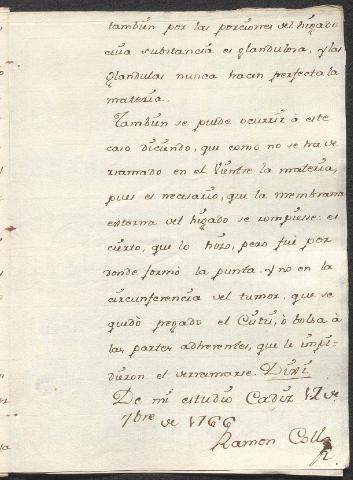 tambien por las porciones del higado
cuia substancia es glandulosa, y las
glandulas nunca hacen perfecta la
materia.
Tambien se puede ocurrir à este
caso diciendo, que como no se ha de-
rramado en el Vientre la materia,
pues es necesario, que la membrana
externa del higado se rompiese: es
cierto, que lo hizo, pero fue por
donde formó la punta, y no en la
circunferencia del tumor, que se
quedò pegado el Cistis, ò bolsa à
las partes adherentes, que le impi-
dieron el derramarse. Dixi
De mi estudio Cadiz 12 de
7bre de 1766
Ramon